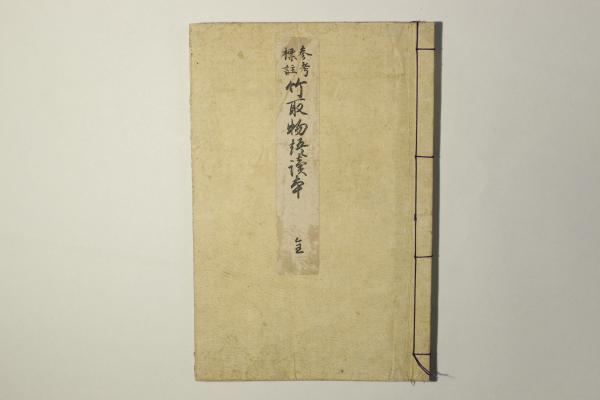 参考
標註
竹取物語讀本
全